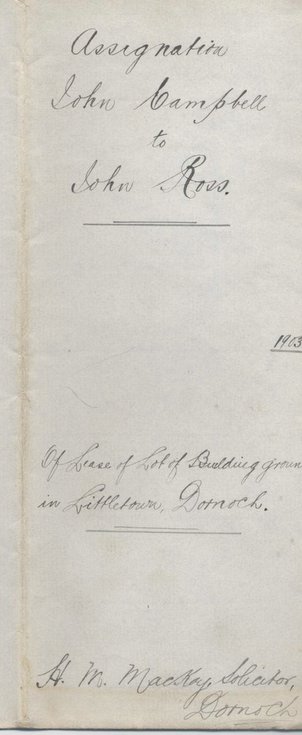 Assignation
John Campbell
to
John Ross.
1903
Of Lease of Lot of Building groun
in Littletown, Dornoch.
H. M. MacKay, Solicitor,
Dornoch